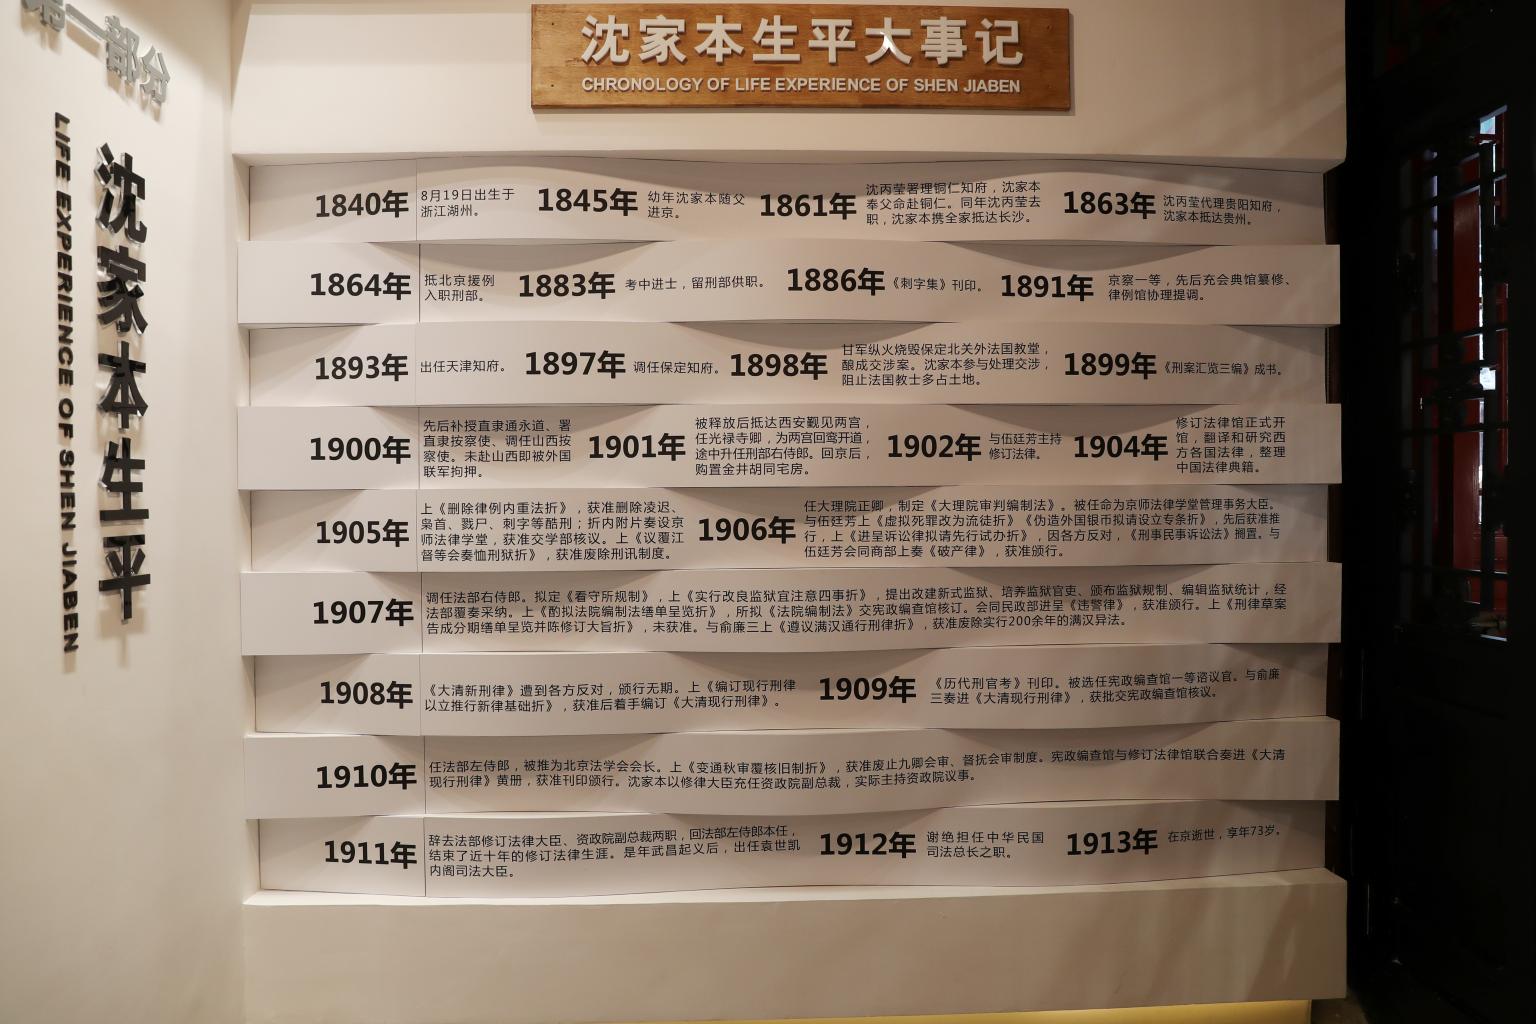 第一部分
沈家本生平
LIFE EXPERIENCE OF SHEN JIABEN
沈家本生平大事记
CHRONOLOGY OF LIFE EXPERIENCE OF SHEN JIABEN
1840年
8月19日出生于
浙江湖州。
1845年
幼年沈家本随父
进京。
1861年
沈丙莹署理铜仁知府，沈家本
奉父命赴铜仁。同年沈丙莹去
职，沈家本携全家抵达长沙。
1863年
沈丙莹代理贵阳知府，
沈家本抵达贵州。
1864年
抵北京援例
入职刑部。
1883年
考中进士，留刑部供职。
1886年
《刺字集》刊印。
1891年
京察一等，先后充会典馆纂修、
律例馆协理提调。
1893年
出任天津知府。
1897年
调任保定知府。
1898年
甘军纵火烧毁保定北关外法国教堂，
酿成交涉案。沈家本参与处理交涉，
阻止法国教士多占土地。
1899年
《刑案汇览三编》成书。
1900年
先后补授直隶通永道、署
直隶按察使、调任山西按
察使。未赴山西即被外国
联军拘押。
1901年
被释放后抵达西安觐见两宫，
任光禄寺卿，为两宫回鸾开道，
途中升任刑部右侍郎。回京后，
购置金井胡同宅房。
1902年
与伍廷芳主持
修订法律。
1904年
修订法律馆正式开
馆，翻译和研究西
方各国法律，整理
中国法律典籍。
1905年
上《删除律例内重法折》，获准删除凌迟、
枭首、戮尸、刺字等酷刑；折内附片奏设京
师法律学堂，获准交学部核议。上《议覆江
督等会奏恤刑狱折》，获准废除刑讯制度。
1906年
任大理院正卿，制定《大理院审判编制法》。被任命为京师法律学堂管理事务大臣。
与伍廷芳上《虚拟死罪改为流徒折》《伪造外国银币拟请设立专条折》，先后获准推
行，上《进呈诉讼律拟请先行试办折》，因各方反对，《刑事民事诉讼法》搁置。与
伍廷芳会同商部上奏《破产律》，获准颁行。
1907年
调任法部右侍郎。拟定《看守所规制》，上《实行改良监狱宜注意四事折》，提出改建新式监狱、培养监狱官吏、颁布监狱规制、编辑监狱统计，经
法部覆奏采纳。上《酌拟法院编制法缮单呈览折》，所拟《法院编制法》交宪政编查馆核订。会同民政部进呈《违警律》，获准颁行。上《刑律草案
告成分期缮单呈览并陈修订大旨折》，未获准。与俞廉三上《遵议满汉通行刑律折》，获准废除实行200余年的满汉异法。
1908年
《大清新刑律》遭到各方反对，颁行无期。上《编订现行刑律
以立推行新律基础折》，获准后着手编订《大清现行刑律》。
1909年
《历代刑官考》刊印。被选任宪政编查馆一等谘议官。与俞廉
三奏进《大清现行刑律》，获批交宪政编查馆核议。
1910年
任法部左侍郎，被推为北京法学会会长。上《变通秋审覆核旧制折》，获准废止九卿会审、督抚会审制度。宪政编查馆与修订法律馆联合奏进《大清
现行刑律》黄册，获准刊印颁行。沈家本以修律大臣充任资政院副总裁，实际主持资政院议事。
1911年
辞去法部修订法律大臣、资政院副总裁两职，回法部左侍郎本任，
结束了近十年的修订法律生涯。是年武昌起义后，出任袁世凯
内阁司法大臣。
1912年
谢绝担任中华民国
司法总长之职。
1913年
在京逝世，享年73岁。